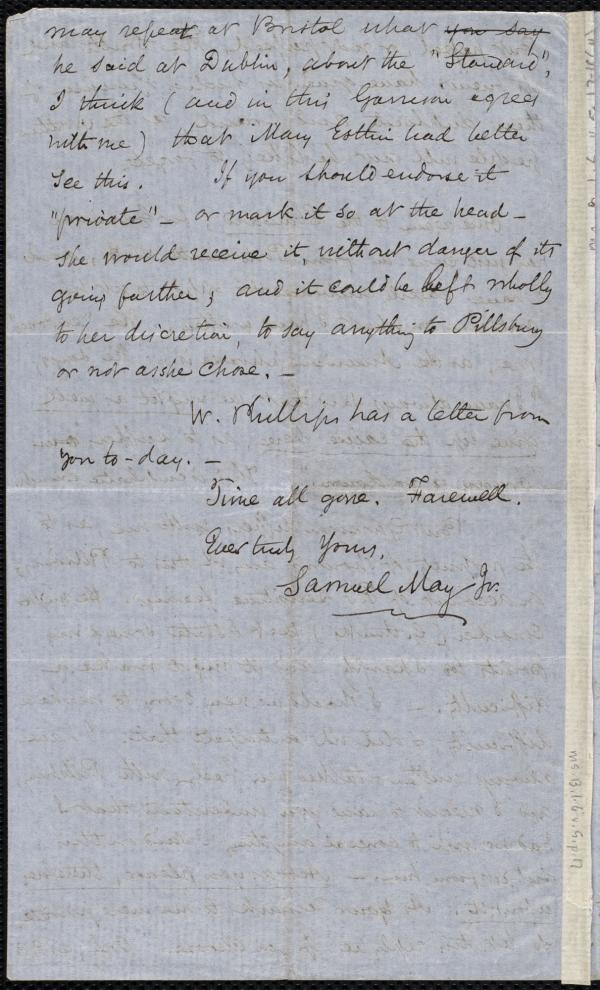 may repeat at Bristol what you say
he said at Dublin, about the "Standard",
I think (and in this Garrison agrees
with me) that Mary Estlin had better
see this. If you should endorse it
"private" - or mark it so at the head -
she would receive it, without danger of its
going further; and it could be left wholly
to her discretion, to say anything to Pillsbury
or not as she chose. -
W. Phillips has a letter from
you to-day. -
Time all gone. Farewell.
Ever truly Yours,
Samuel May Jr.